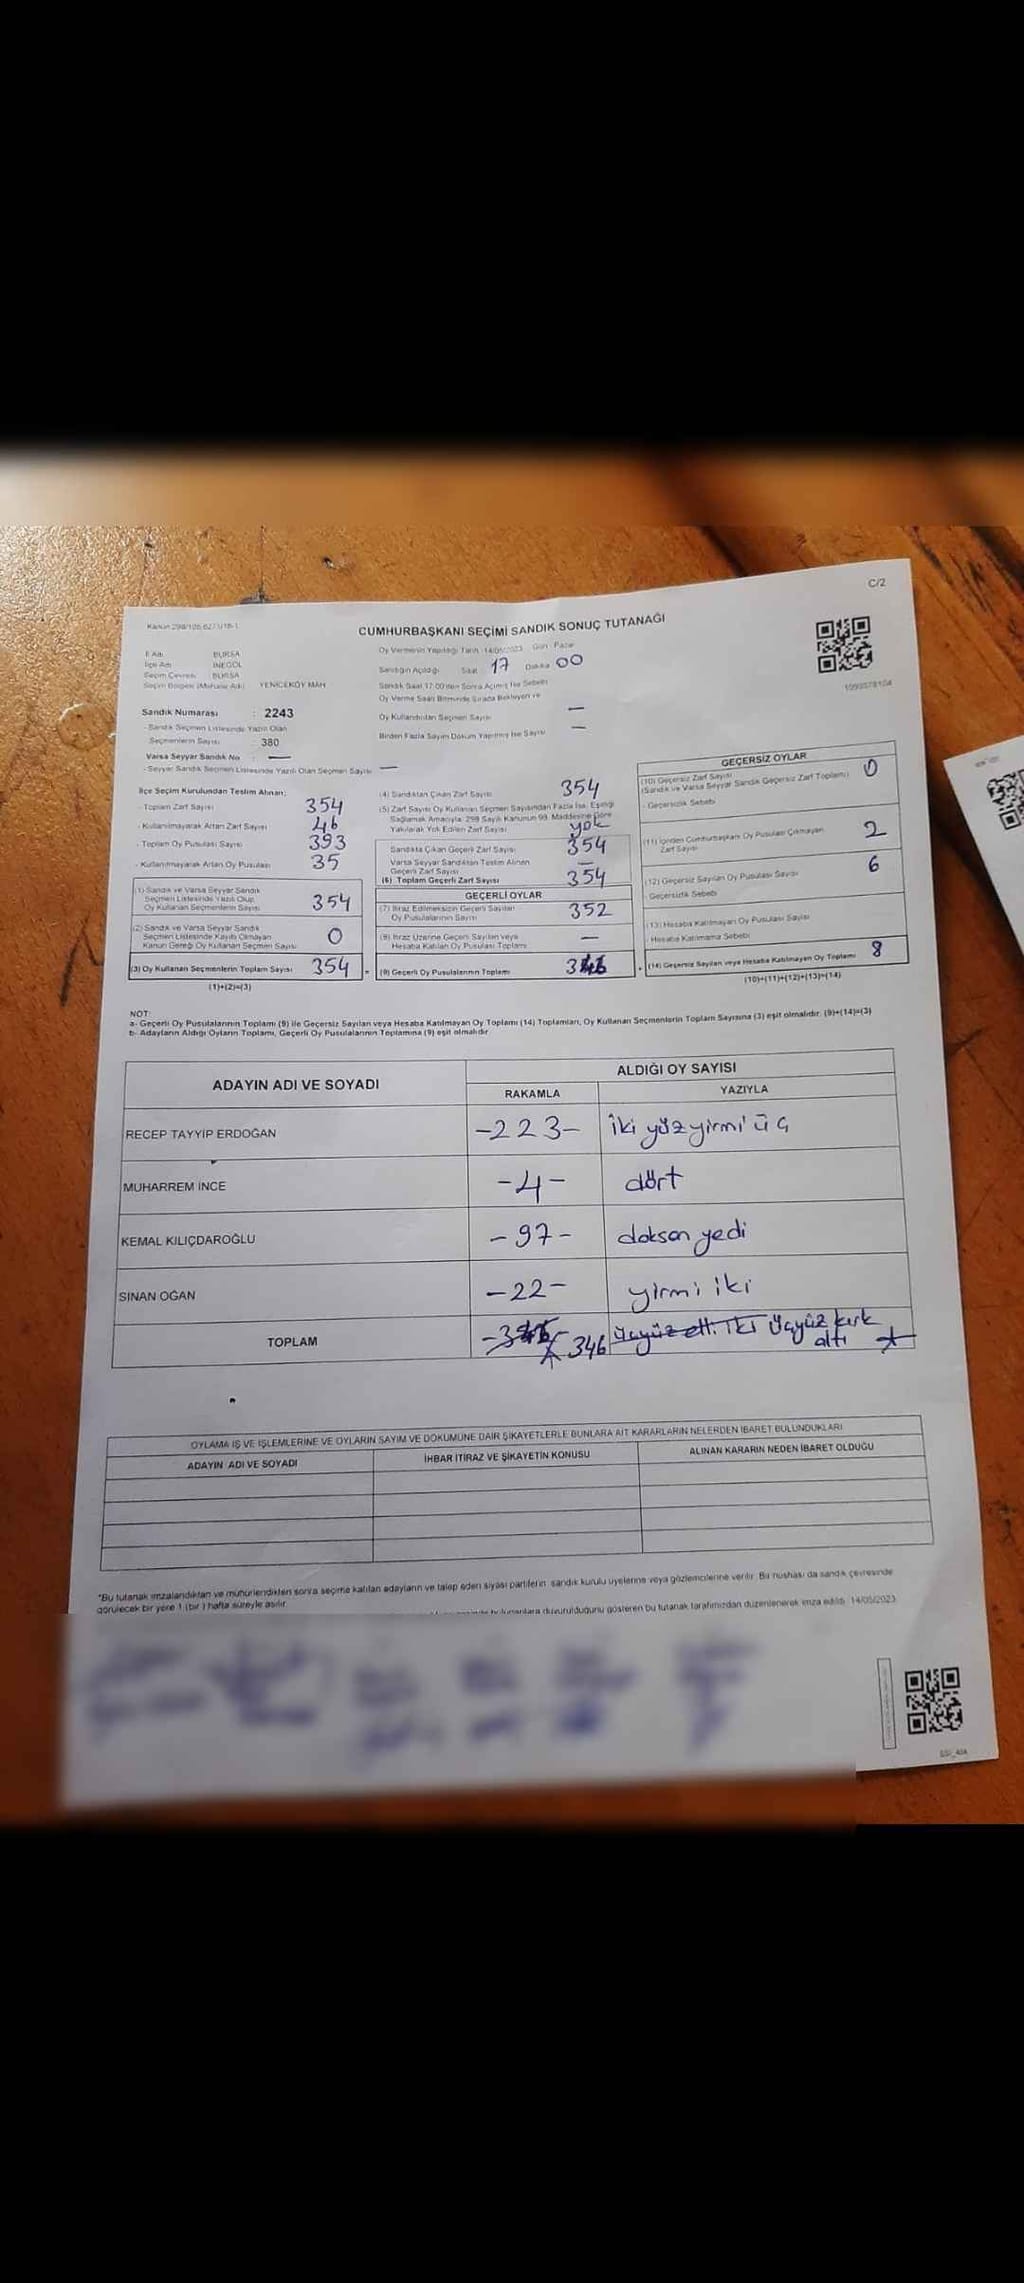 C/2
CUMHURBAŞKANI SEÇİMİ SANDIK SONUÇ TUTANAĞI
İl Adı BURSA
İlçe Adı İNEGÖL
Seçim Çevresi BURSA
Seçim Bölgesi (Mahalle Adı) YENİCEKÖY MAH
Sandık Numarası : 2243
- Sandık Seçmen Listesinde Yazılı Olan
Seçmenlerin Sayısı : 380
Varsa Seyyar Sandık No : —
- Seyyar Sandık Seçmen Listesinde Yazılı Olan Seçmen Sayısı —
Oy Vermenin Yapıldığı Tarih : 14/05/2023 Gün : Pazar
Sandığın Açıldığı Saat 17 Dakika 00
Sandık Saat 17:00'den Sonra Açılmış İse Sebebi
Oy Verme Saati Bitiminde Sırada Bekleyen ve
Oy Kullandırılan Seçmen Sayısı —
Birden Fazla Sayım Döküm Yapılmış İse Sayısı —
1099378104
İlçe Seçim Kurulundan Teslim Alınan;
- Toplam Zarf Sayısı 354
- Kullanılmayarak Artan Zarf Sayısı 46
- Toplam Oy Pusulası Sayısı 393
- Kullanılmayarak Artan Oy Pusulası 35
(1) Sandık ve Varsa Seyyar Sandık
Seçmen Listesinde Yazılı Olup
Oy Kullanan Seçmenlerin Sayısı 354
(2) Sandık ve Varsa Seyyar Sandık
Seçmen Listesinde Kayıtlı Olmayan
Kanun Gereği Oy Kullanan Seçmen Sayısı 0
(3) Oy Kullanan Seçmenlerin Toplam Sayısı 354
(1)+(2)=(3)
(4) Sandıktan Çıkan Zarf Sayısı 354
(5) Zarf Sayısı Oy Kullanan Seçmen Sayısından Fazla İse, Eşitliği
Sağlamak Amacıyla; 298 Sayılı Kanunun 98. Maddesine Göre
Yakılarak Yok Edilen Zarf Sayısı yok
Sandıkta Çıkan Geçerli Zarf Sayısı 354
Varsa Seyyar Sandıktan Teslim Alınan
Geçerli Zarf Sayısı —
(6) Toplam Geçerli Zarf Sayısı 354
GEÇERLİ OYLAR
(7) İtiraz Edilmeksizin Geçerli Sayılan
Oy Pusulalarının Sayısı 352
(8) İtiraz Üzerine Geçerli Sayılan veya
Hesaba Katılan Oy Pusulası Toplamı —
(9) Geçerli Oy Pusulalarının Toplamı 346
GEÇERSİZ OYLAR
(10) Geçersiz Zarf Sayısı
(Sandık ve Varsa Seyyar Sandık Geçersiz Zarf Toplamı) 0
- Geçersizlik Sebebi
(11) İçinden Cumhurbaşkanı Oy Pusulası Çıkmayan
Zarf Sayısı 2
(12) Geçersiz Sayılan Oy Pusulası Sayısı 6
- Geçersizlik Sebebi
(13) Hesaba Katılmayan Oy Pusulası Sayısı
- Hesaba Katılmama Sebebi
(14) Geçersiz Sayılan veya Hesaba Katılmayan Oy Toplamı 8
(10)+(11)+(12)+(13)=(14)
NOT:
a- Geçerli Oy Pusulalarının Toplamı (9) ile Geçersiz Sayılan veya Hesaba Katılmayan Oy Toplamı (14) Toplamları, Oy Kullanan Seçmenlerin Toplam Sayısına (3) eşit olmalıdır. (9)+(14)=(3)
b- Adayların Aldığı Oyların Toplamı, Geçerli Oy Pusulalarının Toplamına (9) eşit olmalıdır.
ADAYIN ADI VE SOYADI ALDIĞI OY SAYISI
RAKAMLA YAZIYLA
RECEP TAYYİP ERDOĞAN -223- iki yüz yirmi üç
MUHARREM İNCE -4- dört
KEMAL KILIÇDAROĞLU -97- doksan yedi
SİNAN OĞAN -22- yirmi iki
TOPLAM 346 üçyüz elli iki üçyüz kırk
altı
OYLAMA İŞ VE İŞLEMLERİNE VE OYLARIN SAYIM VE DÖKÜMÜNE DAİR ŞİKAYETLERLE BUNLARA AİT KARARLARIN NELERDEN İBARET BULUNDUKLARI
ADAYIN ADI VE SOYADI İHBAR İTİRAZ VE ŞİKAYETİN KONUSU ALINAN KARARIN NEDEN İBARET OLDUĞU
*Bu tutanak imzalandıktan ve mühürlendikten sonra seçime katılan adayların ve talep eden siyasi partilerin sandık kurulu üyelerine veya gözlemcilerine verilir. Bir nüshası da sandık çevresinde
görülecek bir yere 1 (bir) hafta süreyle asılır.
duyurulduğunu gösteren bu tutanak tarafımızdan düzenlenerek imza edildi. 14/05/2023